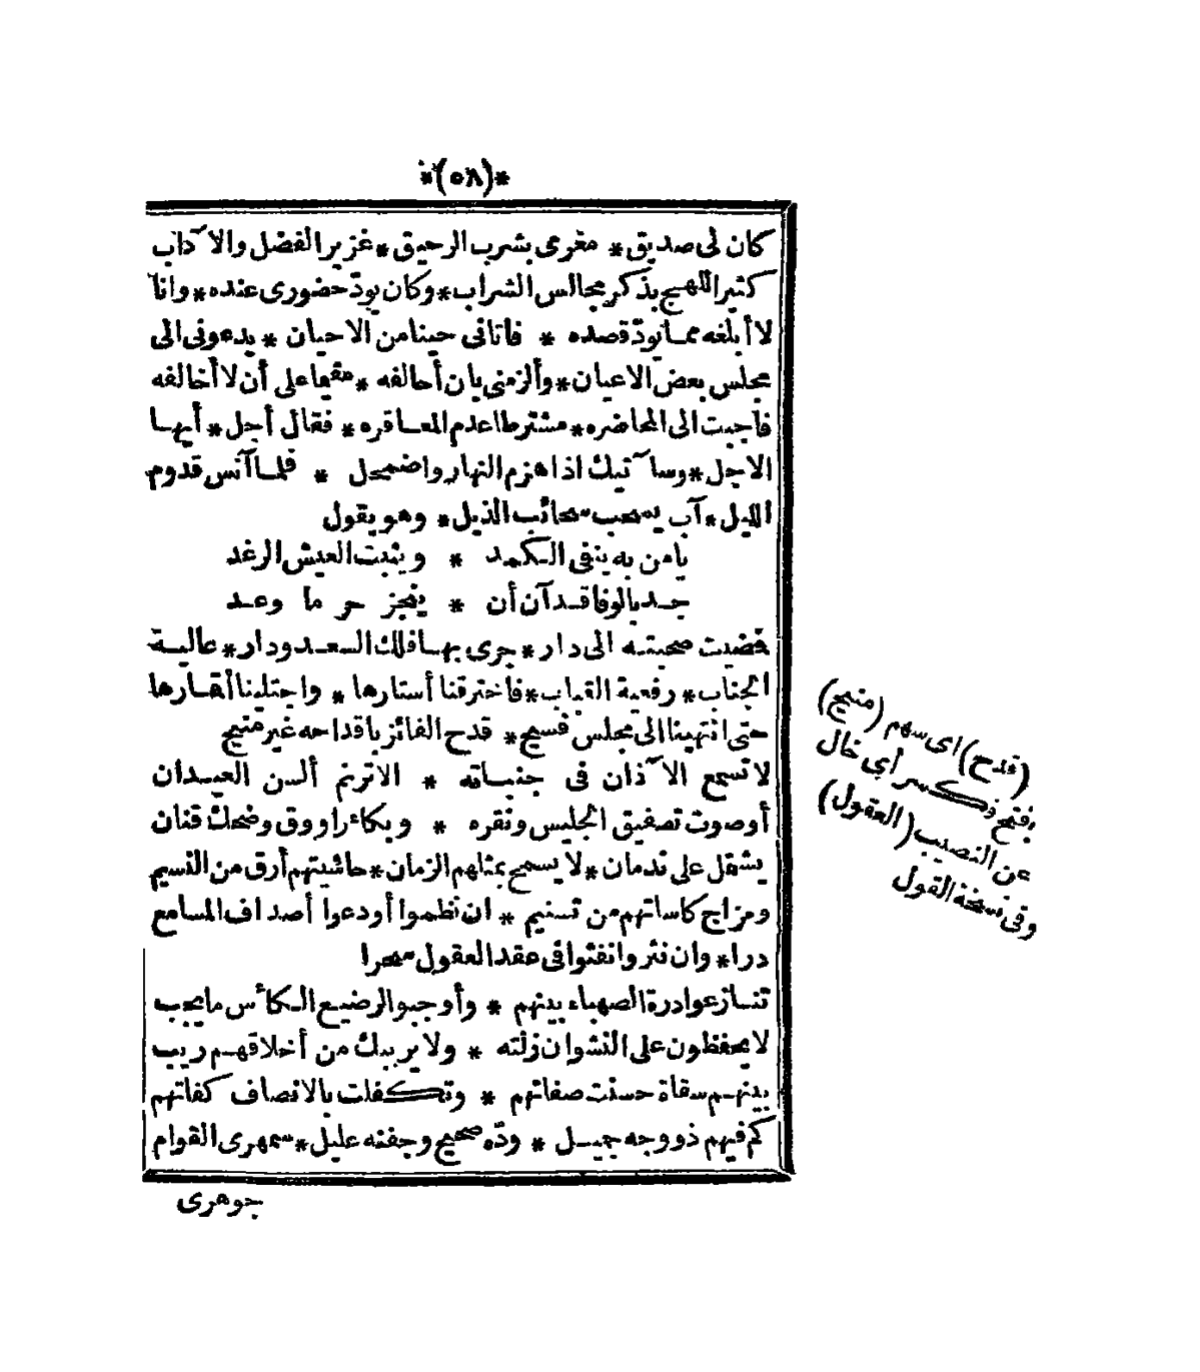 *(٥٨)*
كان لى صديق* مغرى بشرب الرحيق*غزير الفضل والآداب
كثير اللهج بذكر مجالس الشراب*وكان يودّ حضورى عنده*وانا
لا أبلغه مما نودّ قصده * فأتانى حينا من الاحيان * يدعونى الى
مجلس بعض الاعيان*وألزمنى بان أحالفه *مقيما على أن لا أخالفه
فأجبت الى المحاضره*مشترطا عدم المعاقره* فقال أجل* أيها
الاجل*وسآتيك اذا هزم النهار واضمحل * فلما آنس قدوم
الليل*آب يسحب سحائب الذيل* وهو يقول
يا من به ينفى الكمد * ويثبت العيش الرغد
جد بالوفا قد آن أن * ينجز حر ما وعد
فمضيت صحبته الى دار*جرى بها فلك السعد ودار* عالية
الجناب* رفيعة القباب*فاخترقنا أستارها * واجتلينا أقمارها
حتى انتهينا الى مجلس فسيح* قدح الفائز باقداحه غير منيح
لا تسمع الآذان فى جنباته * الا ترنم ألسن العيدان
أو صوت تصفيق الجليس ونقره * وبكاء راووق وضحك قنان
يشتمل على ندمان*لا يسمح بمثلهم الزمان*حاشيتهم أرق من النسيم
ومزاج كاساتهم من تسنيم * ان نظموا أودعوا أصداف المسامع
درا* وان نثروا نفثوا فى عقد العقول سحرا
تنازعوا درة الصهباء بينهم * وأوجبوا لرضيع الكأس ما يجب
لا يحفظون على النشوان زلته * ولا يريبك من أخلاقهم ريب
بينهم سقاة حسنت صفاتهم * وتكفلت بالانصاف كفاتهم
كم فيهم ذو وجه جميل * ودّه صحيح وجفنه عليل*سمهرى القوام
جوهرى
(قدح) اى سهم (منيح)
بفتح فكسر أى خال
عن النصيب (العقول)
وفى نسخة القول